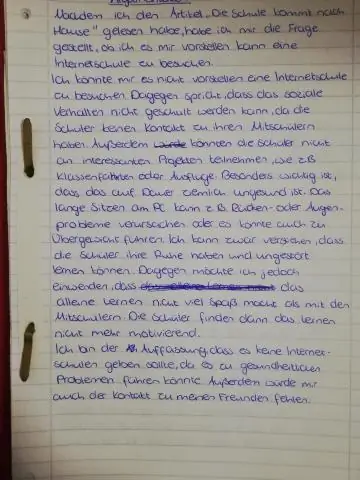 Nachdem ich den Artikel „Die Schule kommt nach
Hause" gelesen habe, habe ich mir die Frage
gestellt, ob ich es mir vorstellen kann eine
Internetschule zu besuchen.
Ich könnte mir es nicht vorstellen eine Internetschule
zu besuchen. Dagegen spricht, dass das soziale
Verhalten nicht geschult werden kann, da die
Schüler keinen Kontakt zu ihren Mitschülern
haben. Außerdem würde könnten die Schüler nicht
an interessanten Projekten teilnehmen, wie z.B
Klassenfahrten oder Ausflüge. Besonders wichtig ist,
dass das auf Dauer ziemlich ungesund ist. Das
lange Sitzen am PC kann z.B. Rücken- oder Augen-
probleme verursachen oder es könnte auch zu
Übergewicht führen. Ich kann zwar verstehen, dass
die Schüler ihre Ruhe haben und ungestört
lernen können. Dagegen möchte ich jedoch
einwenden, dass das
alleine Lernen nicht viel Spaß macht als mit den
Mitschülern. Die Schüler finden dann das Lernen
nicht mehr motivierend.
Ich bin der Auffassung, dass es keine Internet-
schulen geben sollte, da es zu gesundheitlichen
Problemen führen könnte. Außerdem würde mir
auch der Kontakt zu meinen Freunden fehlen.